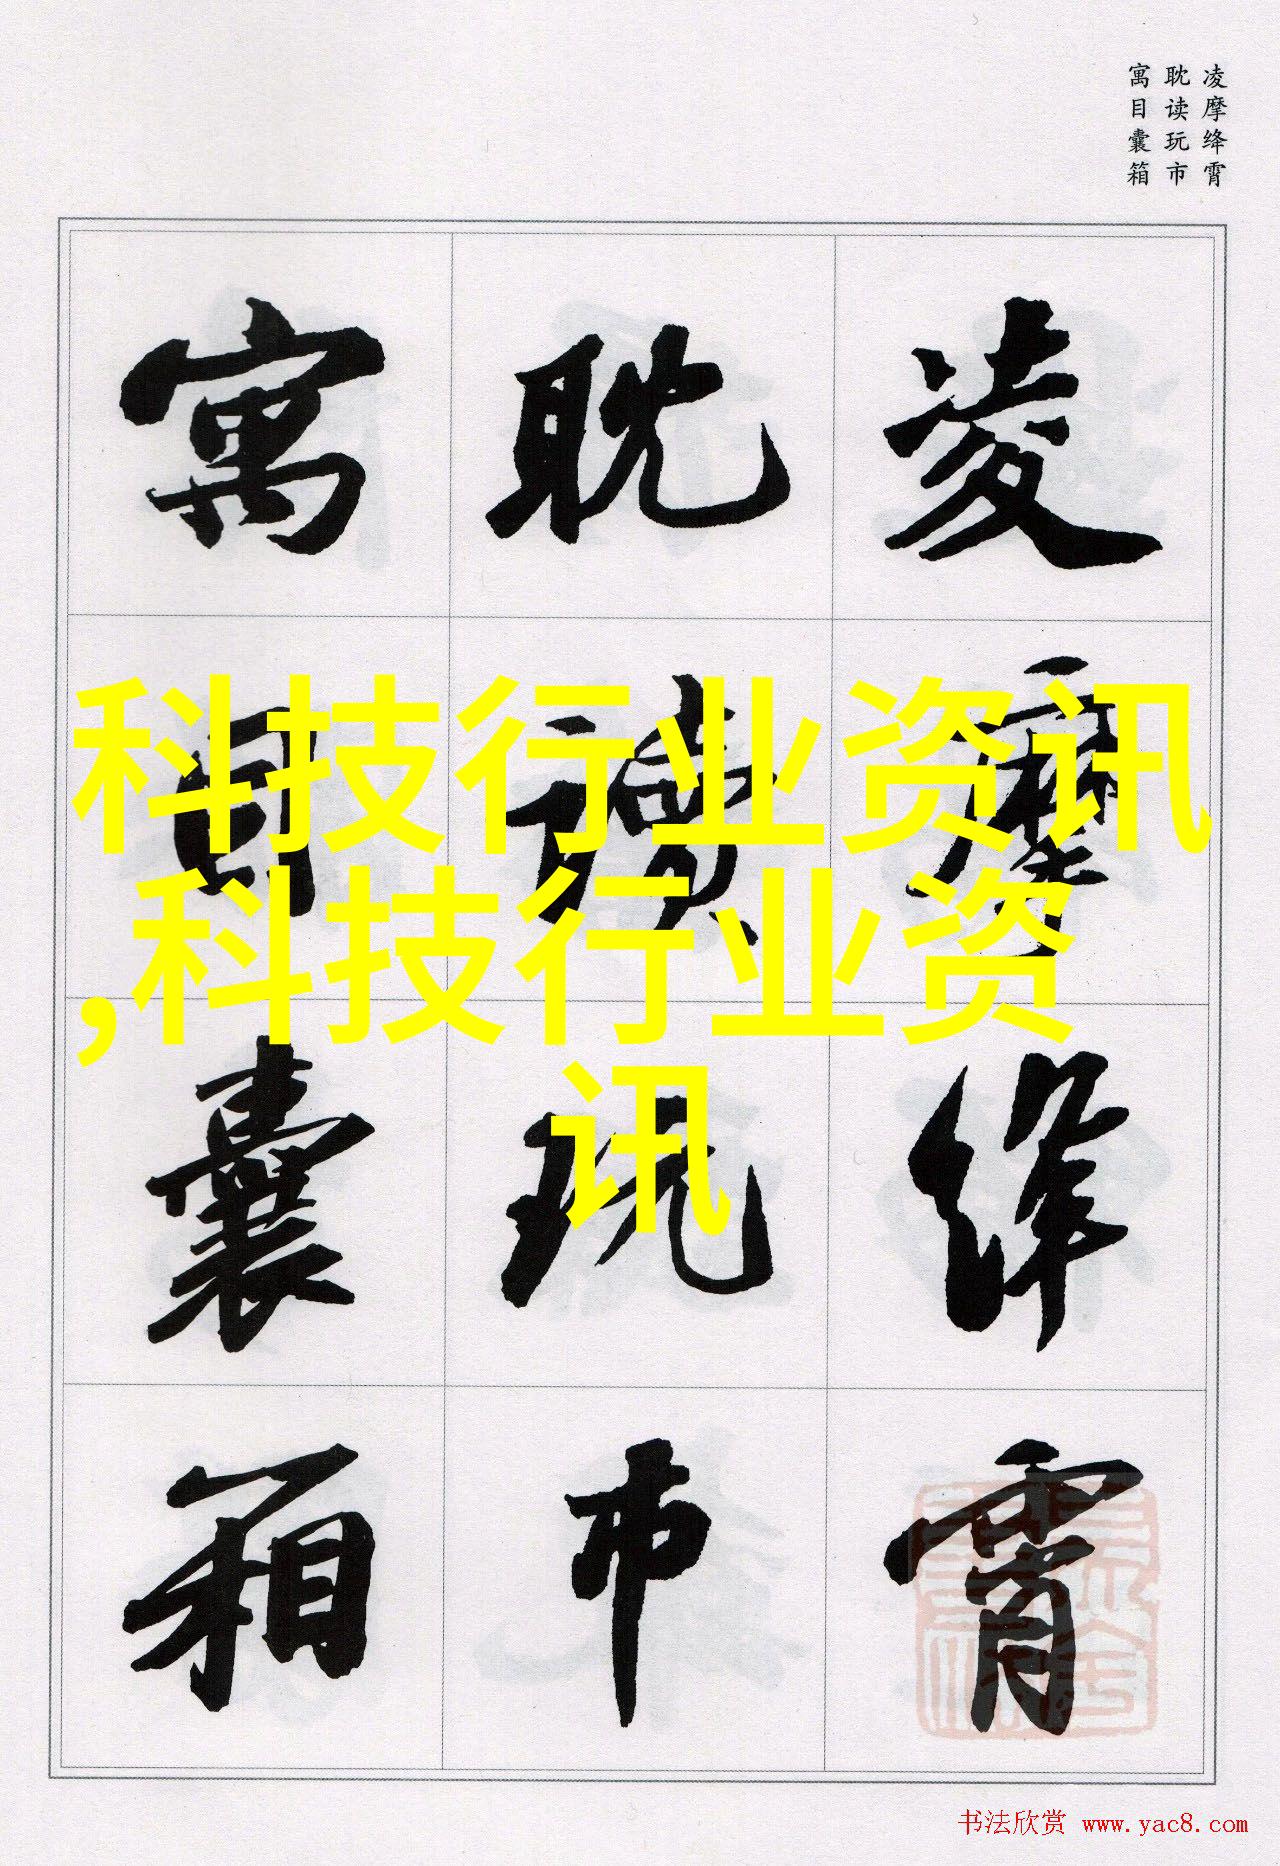 凌摩绛霄
耽读玩市
寓目囊箱
凌摩绛霄
耽讀玩市
寓目囊箱
科技行业资讯
,科技行业资
讯
书法欣赏 www.yac8.com